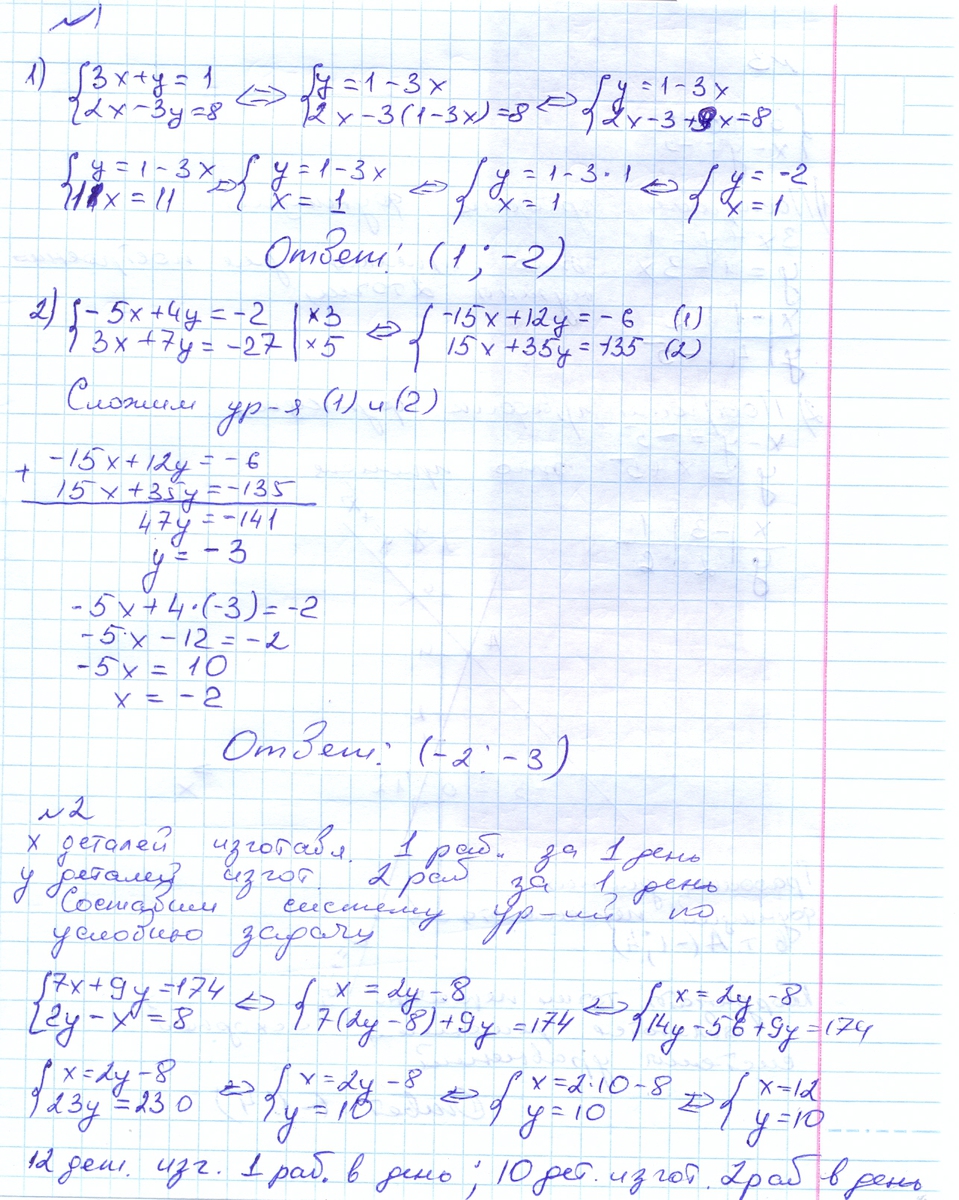 №1
1) {3x+y=1 {2x-3y=8 <=> {y=1-3x {2x-3(1-3x)=8 <=> {y=1-3x {2x-3+9x=8
{y=1-3x {11x=11 <=> {y=1-3x {x=1 <=> {y=1-3·1 {x=1 <=> {y=-2 {x=1
Ответ: (1; -2)
2) {-5x+4y=-2 |×3 {3x+7y=-27 |×5 <=> {-15x+12y=-6 (1) {15x+35y=-135 (2)
Сложим ур-я (1) и (2)
+ -15x+12y=-6
15x+35y=-135
47y=-141
y=-3
-5x+4·(-3)=-2
-5x-12=-2
-5x=10
x=-2
Ответ: (-2; -3)
№2
x деталей изготавл. 1 раб. за 1 день
y деталей изгот. 2 раб за 1 день
Составим систему ур-ий по
условию задачи
{7x+9y=174 {2y-x=8 <=> {x=2y-8 {7(2y-8)+9y=174 <=> {x=2y-8 {14y-56+9y=174
{x=2y-8 {23y=230 <=> {x=2y-8 {y=10 <=> {x=2·10-8 {y=10 <=> {x=12 {y=10
12 дет. изг. 1 раб. в день; 10 дет. изгот. 2 раб в день